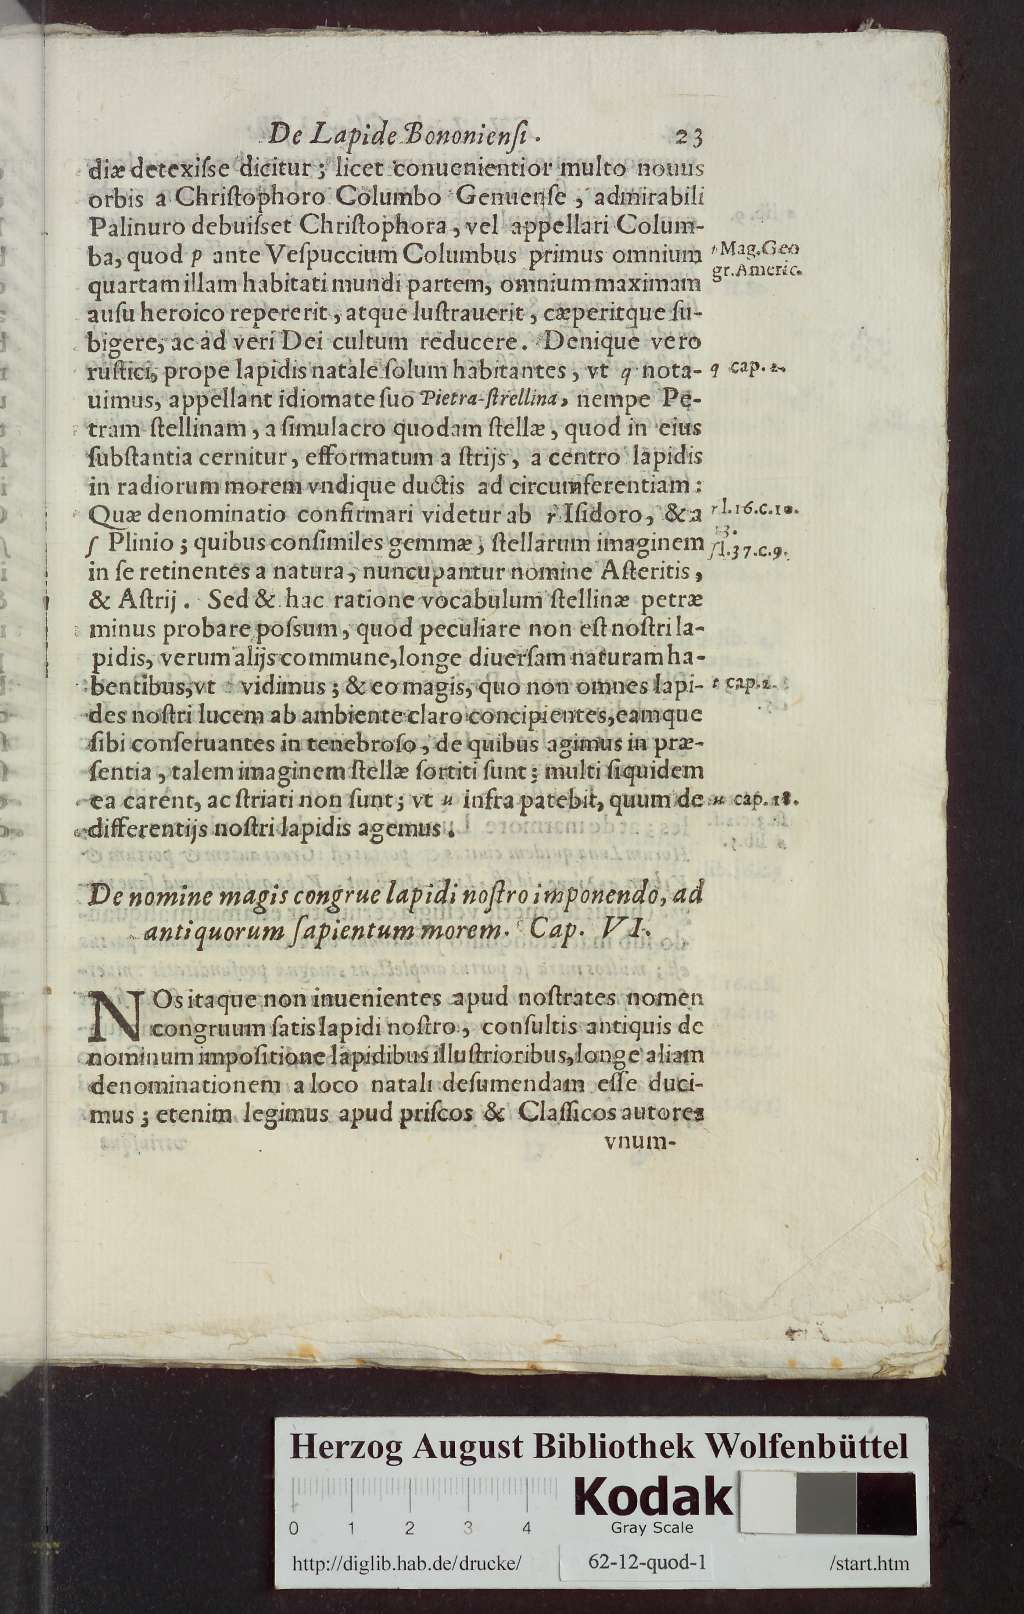 De Lapide Bononiensi. 23
diæ detexisse dicitur; licet conuenientior multo nouus
orbis a Christophoro Columbo Genuense, admirabili
Palinuro debuisset Christophora, vel appellari Colum-
ba, quod p ante Vespuccium Columbus primus omnium
Mag.Geo
gr.Americ.
quartam illam habitati mundi partem, omnium maximam
ausu heroico repererit, atque lustrauerit, cæperitque su-
bigere, ac ad veri Dei cultum reducere. Denique vero
rustici, prope lapidis natale solum habitantes, vt q nota-
q cap. 2.
uimus, appellant idiomate suo Pietra-strellina, nempe Pe-
tram stellinam, a simulacro quodam stellæ, quod in eius
substantia cernitur, efformatum a strijs, a centro lapidis
in radiorum morem vndique ductis ad circumferentiam:
Quæ denominatio confirmari videtur ab r Isidoro, & a
r l.16.c.10.
13.
ſ Plinio; quibus consimiles gemmæ, stellarum imaginem
ſ l.37.c.9.
in se retinentes a natura, nuncupantur nomine Asteritis,
& Astrij. Sed & hac ratione vocabulum stellinæ petræ
minus probare possum, quod peculiare non est nostri la-
pidis, verum alijs commune, longe diuersam naturam ha-
bentibus, vt vidimus; & eo magis, quo non omnes lapi-
t cap. 2.
des nostri lucem ab ambiente claro concipientes, eamque
sibi conseruantes in tenebroso, de quibus agimus in præ-
sentia, talem imaginem stellæ sortiti sunt; multi siquidem
ea carent, ac striati non sunt; vt u infra patebit, quum de
u cap. 18.
differentijs nostri lapidis agemus.
De nomine magis congrue lapidi nostro imponendo, ad
antiquorum sapientum morem. Cap. VI.
NOs itaque non inuenientes apud nostrates nomen
congruum satis lapidi nostro, consultis antiquis de
nominum impositione lapidibus illustrioribus, longe aliam
denominationem a loco natali desumendam esse duci-
mus; etenim legimus apud priscos & Classicos autores
vnum-
Herzog August Bibliothek Wolfenbüttel
0 1 2 3 4
Kodak
Gray Scale
http://diglib.hab.de/drucke/ 62-12-quod-1 /start.htm